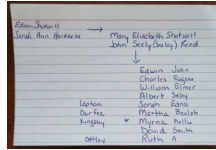 Edwin Shotwell
Sarah Ann Harkness
Mary Elizabeth Shotwell
John Seely (Seeley) Reed
Edwin John
Charles Eugene
William Elmer
Albert Seley
Lapham Sarah Edna
Durfee Martha Beulah
Kingsley * Myrna Nellie
David Smith
Ottley Ruth A